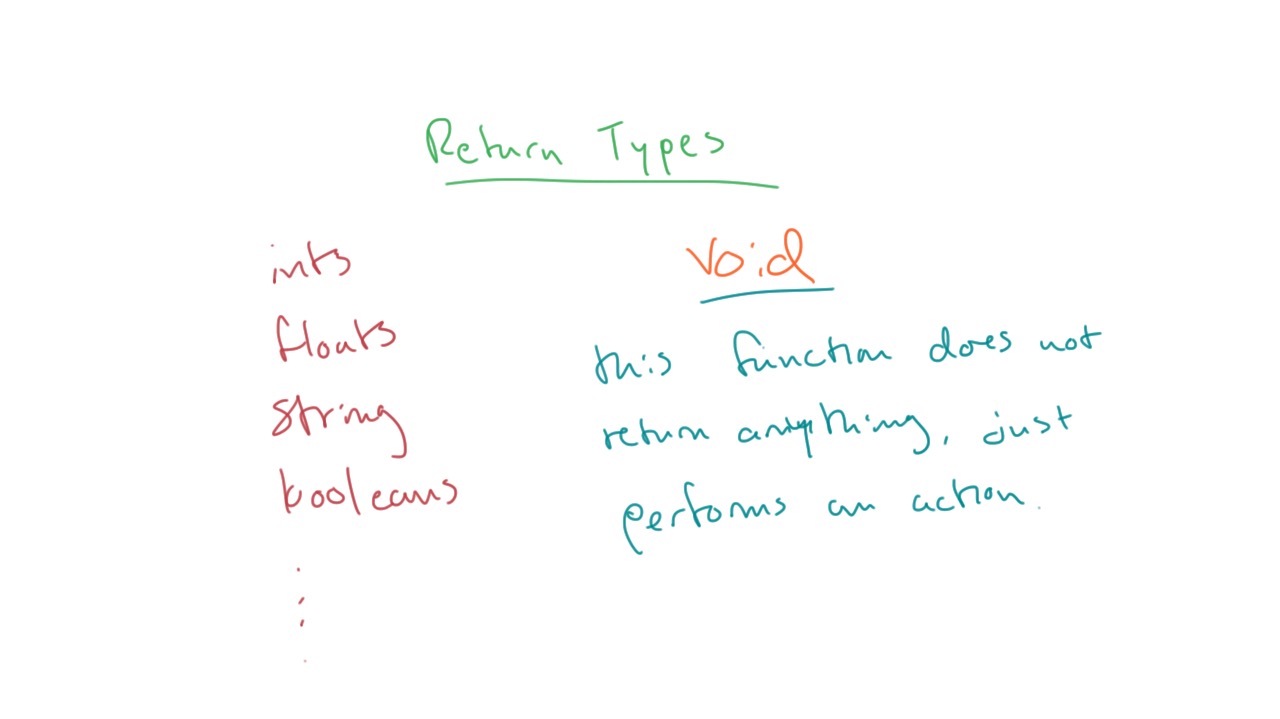 Return Types
ints
floats
string
booleans
void
this function does not
return anything, just
performs an action.